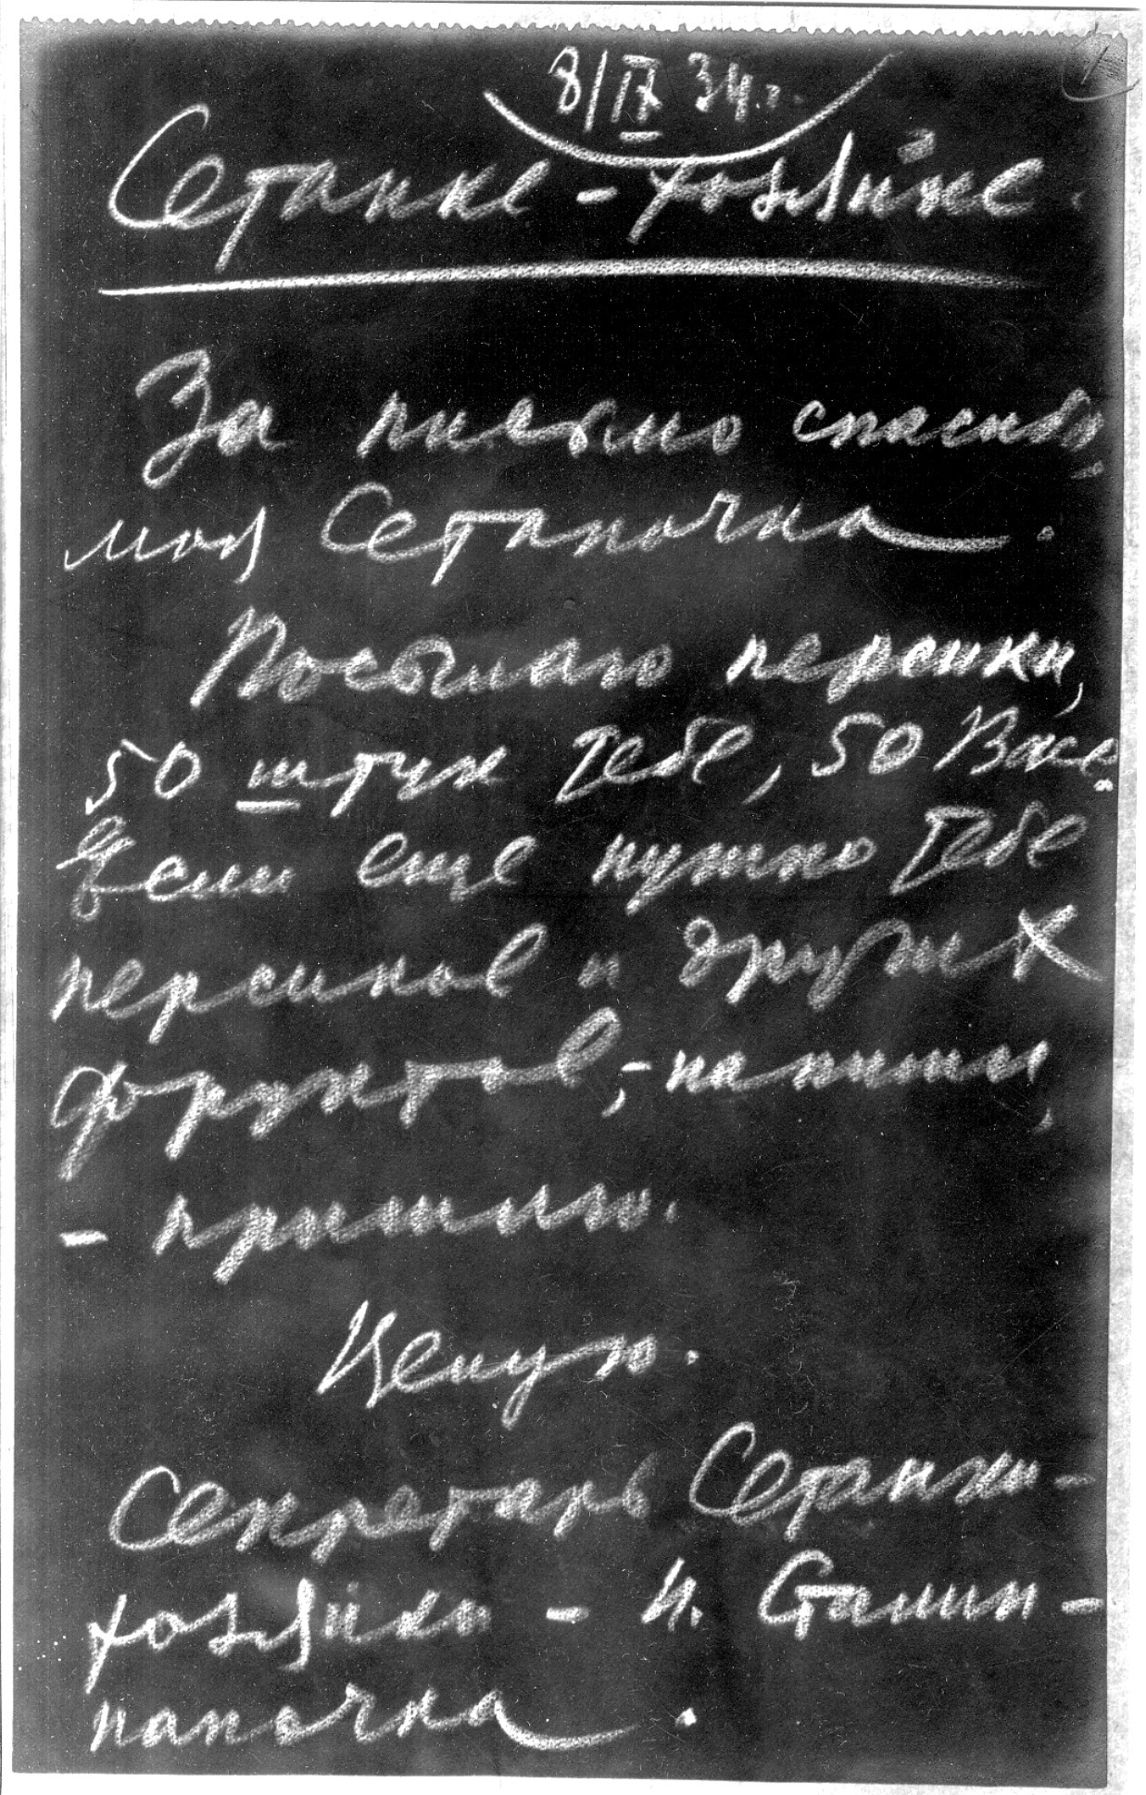 8/IX 34 г.
Сетанке-хозяйке.
За письмо спасибо,
моя Сетаночка.
Посылаю персики,
50 штук тебе, 50 Васе.
Если еще нужно тебе
персиков и других
фруктов, - напиши,
- пришлю.
Целую.
Секретарь Сетанки-
хозяйки - И. Сталин-
папочка.